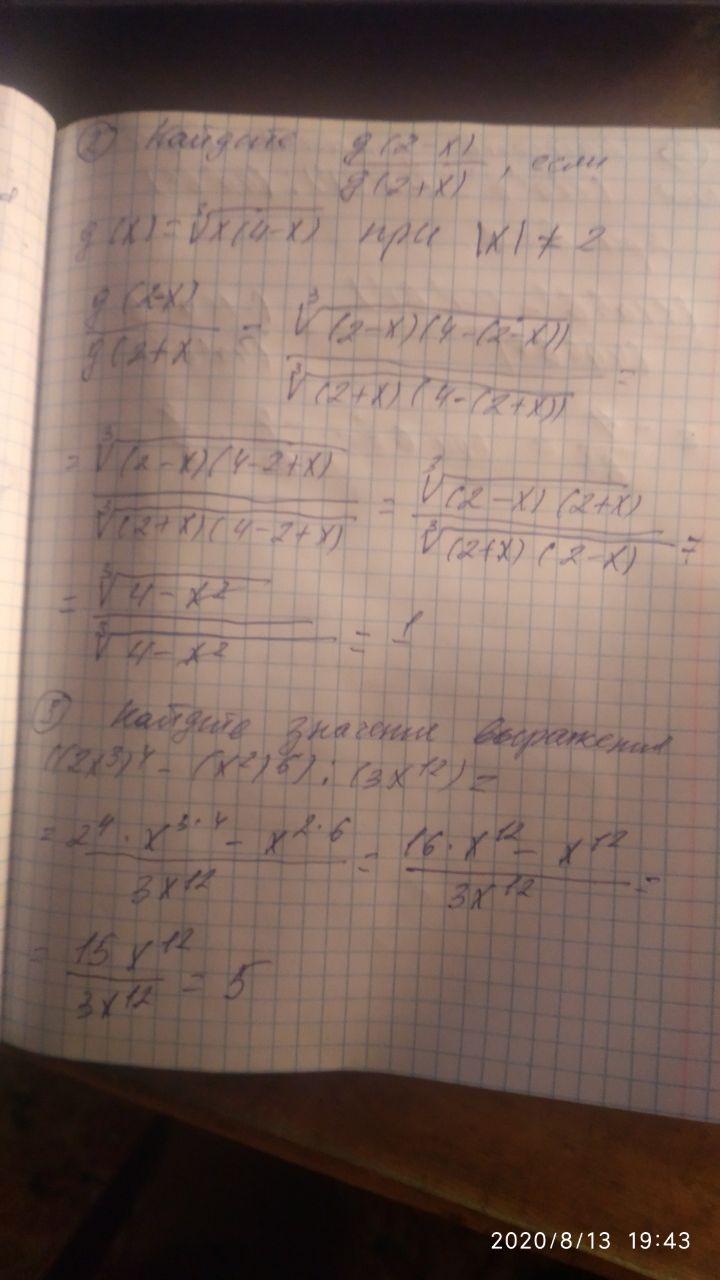 ② Найдите g(2-x)/g(2+x), если
g(x)=∛x(4-x) при |x|≠2
g(2-x)/g(2+x = ∛(2-x)(4-(2-x))/∛(2+x)(4-(2+x)) =
= ∛(2-x)(4-2+x)/∛(2+x)(4-2+x) = ∛(2-x)(2+x)/∛(2+x)(2-x) =
= ∛4-x²/∛4-x² = 1
③ Найдите значение выражения
((2x³)⁴-(x²)⁶):(3x¹²)=
= 2⁴·x³·⁴-x²·⁶/3x¹² = 16·x¹²-x¹²/3x¹² =
= 15x¹²/3x¹² = 5
2020/8/13 19:43